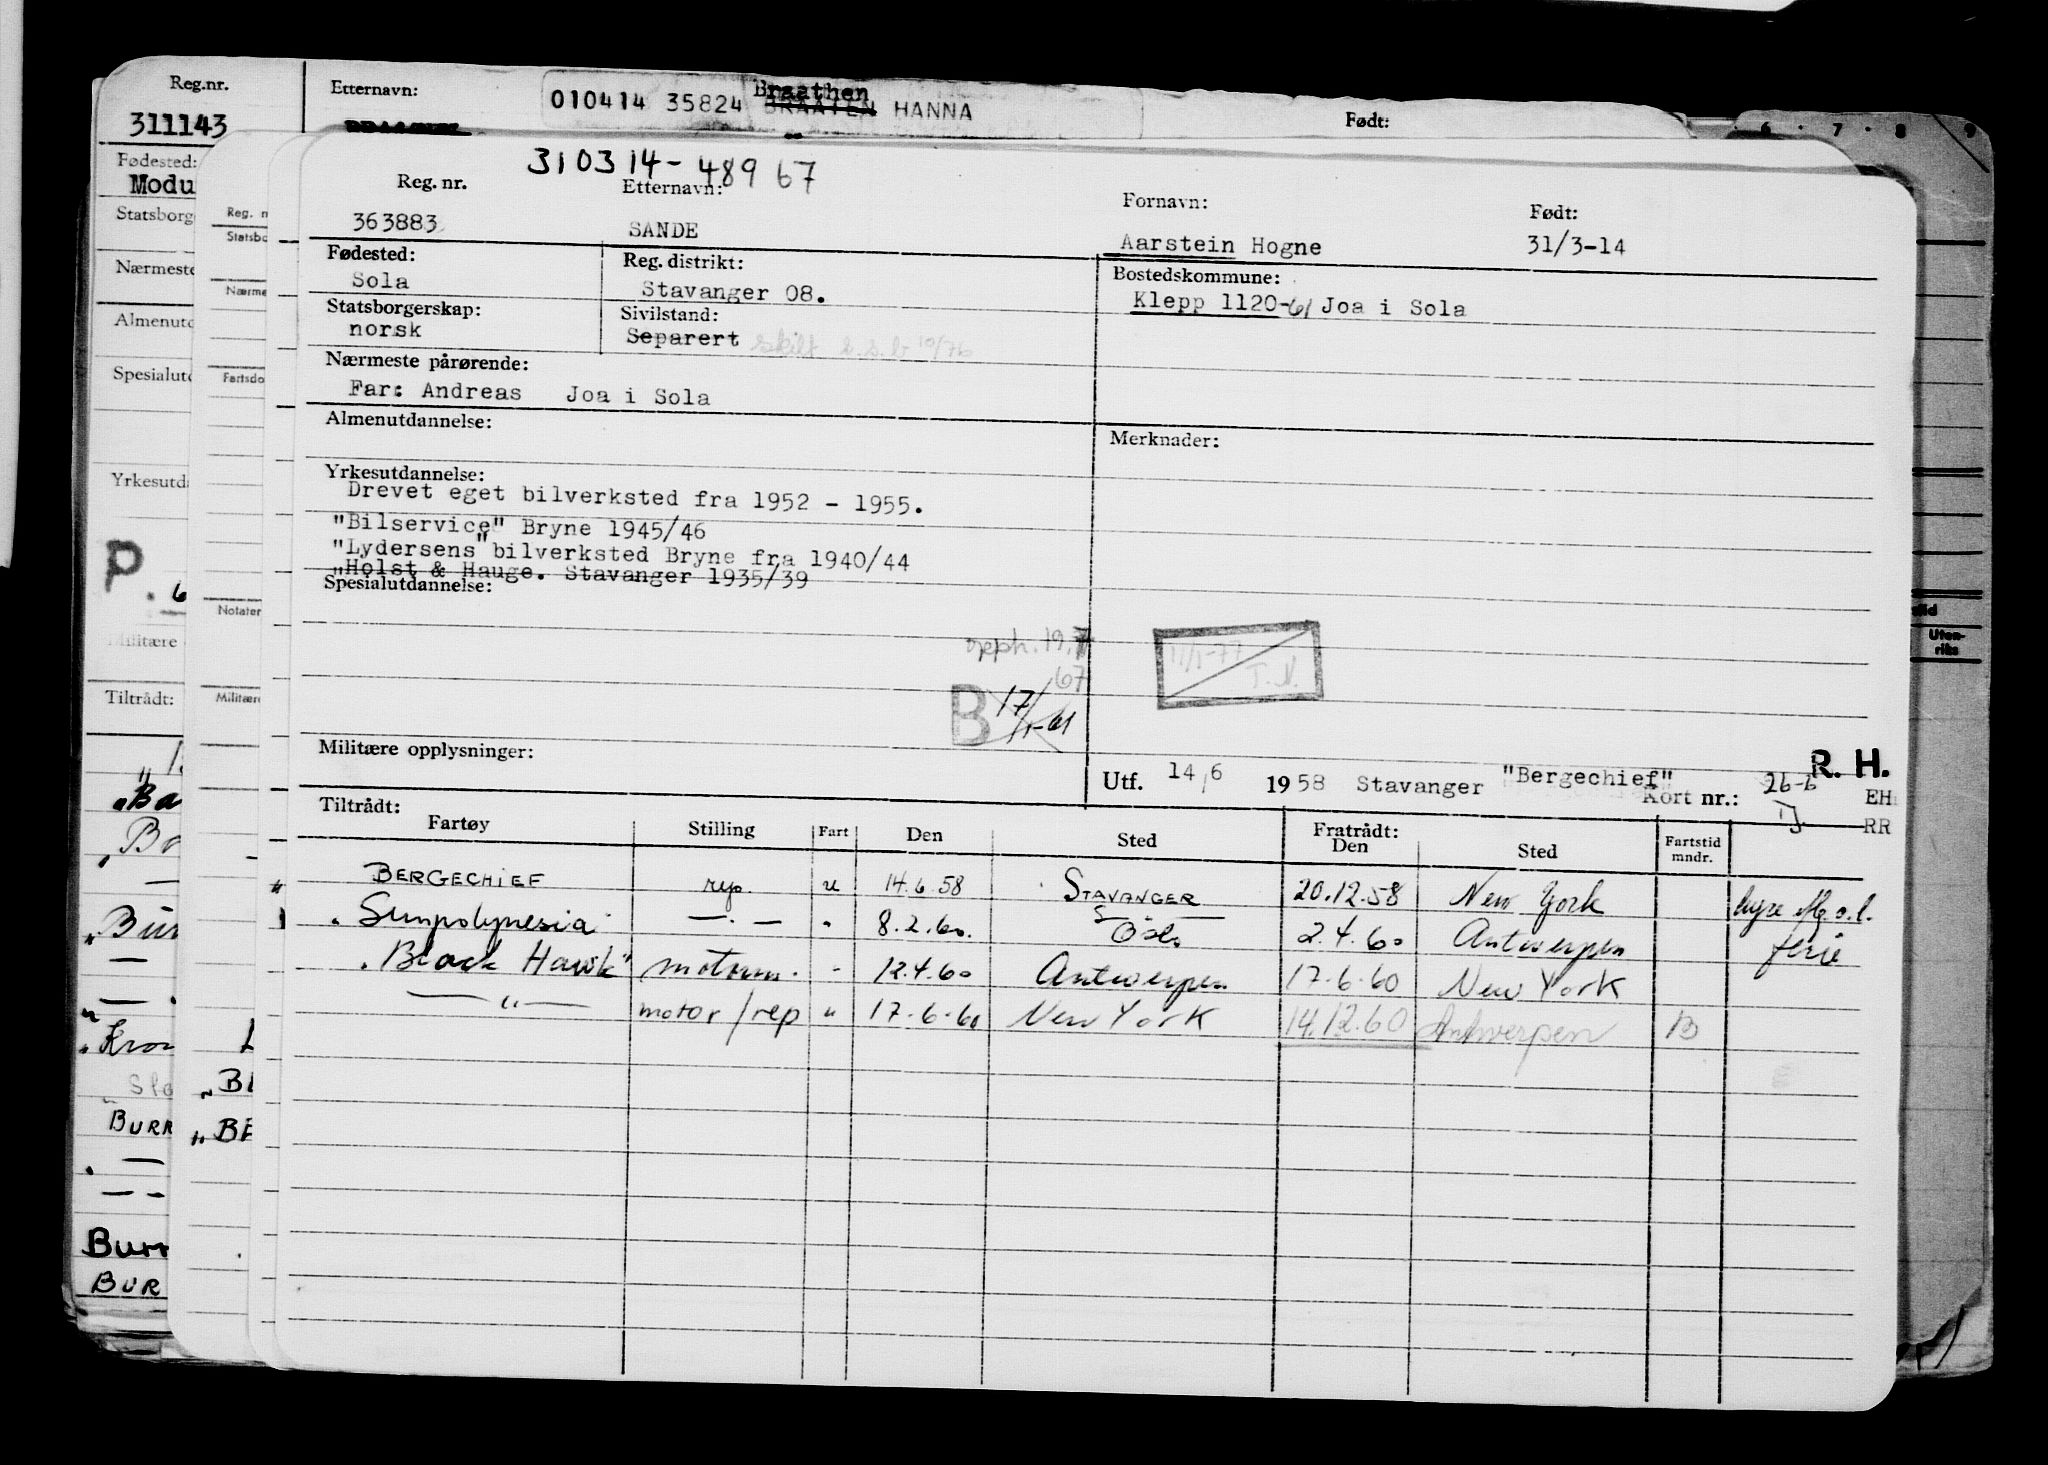 Reg.nr.
311143
Etternavn:
010414 35824 Braathen HANNA
BRAATEN
Født:
Fødested:
Modu
Statsborg
Nærmeste
Almenutd
Spesialutd
Yrkesutd
P
Militære
Tiltrådt:
Reg. n
Statsbo
Nærme
Fartsdo
Notater
Militære
6 . 7 . 8 9
Uten-
riks
"Ba
"Bur
"Kron
BURR
Burr
BUR
"BE
310314-48967
Reg. nr.
Etternavn:
Fornavn:
Født:
363883
SANDE
Aarstein Hogne
31/3-14
Fødested:
Reg. distrikt:
Bostedskommune:
Sola
Stavanger 08.
Klepp 1120-61 Joa i Sola
Statsborgerskap:
Sivilstand:
norsk
Separert skilt s.s.b 10/76
Nærmeste pårørende:
Far: Andreas Joa i Sola
Almenutdannelse:
Merknader:
Yrkesutdannelse:
Drevet eget bilverksted fra 1952 - 1955.
"Bilservice" Bryne 1945/46
"Lydersens" bilverksted Bryne fra 1940/44
"Holst & Hauge. Stavanger 1935/39
Spesialutdannelse:
opph. 19.7
67
B 17/1-61
11/1-77
T.N.
Militære opplysninger:
Utf. 14/6 1958 Stavanger "Bergechief"
Kort nr.:
26-6
R. H.
EH
RR
Tiltrådt:
Fratrådt:
Fartøy Stilling Fart Den Sted Den Sted Fartstid mndr.
" BERGECHIEF rep. u 14.6.58 STAVANGER 20.12.58 New York hyre M.o.l.
" Sunpolynesia — . — " 8.2.60. Oslo 2.4.60 Antwerpen ferie
"Black Hawk" motorm. - 12.4.60 Antwerpen 17.6.60 New York
— " — motor/rep " 17.6.60 New York 14.12.60 Antwerpen B